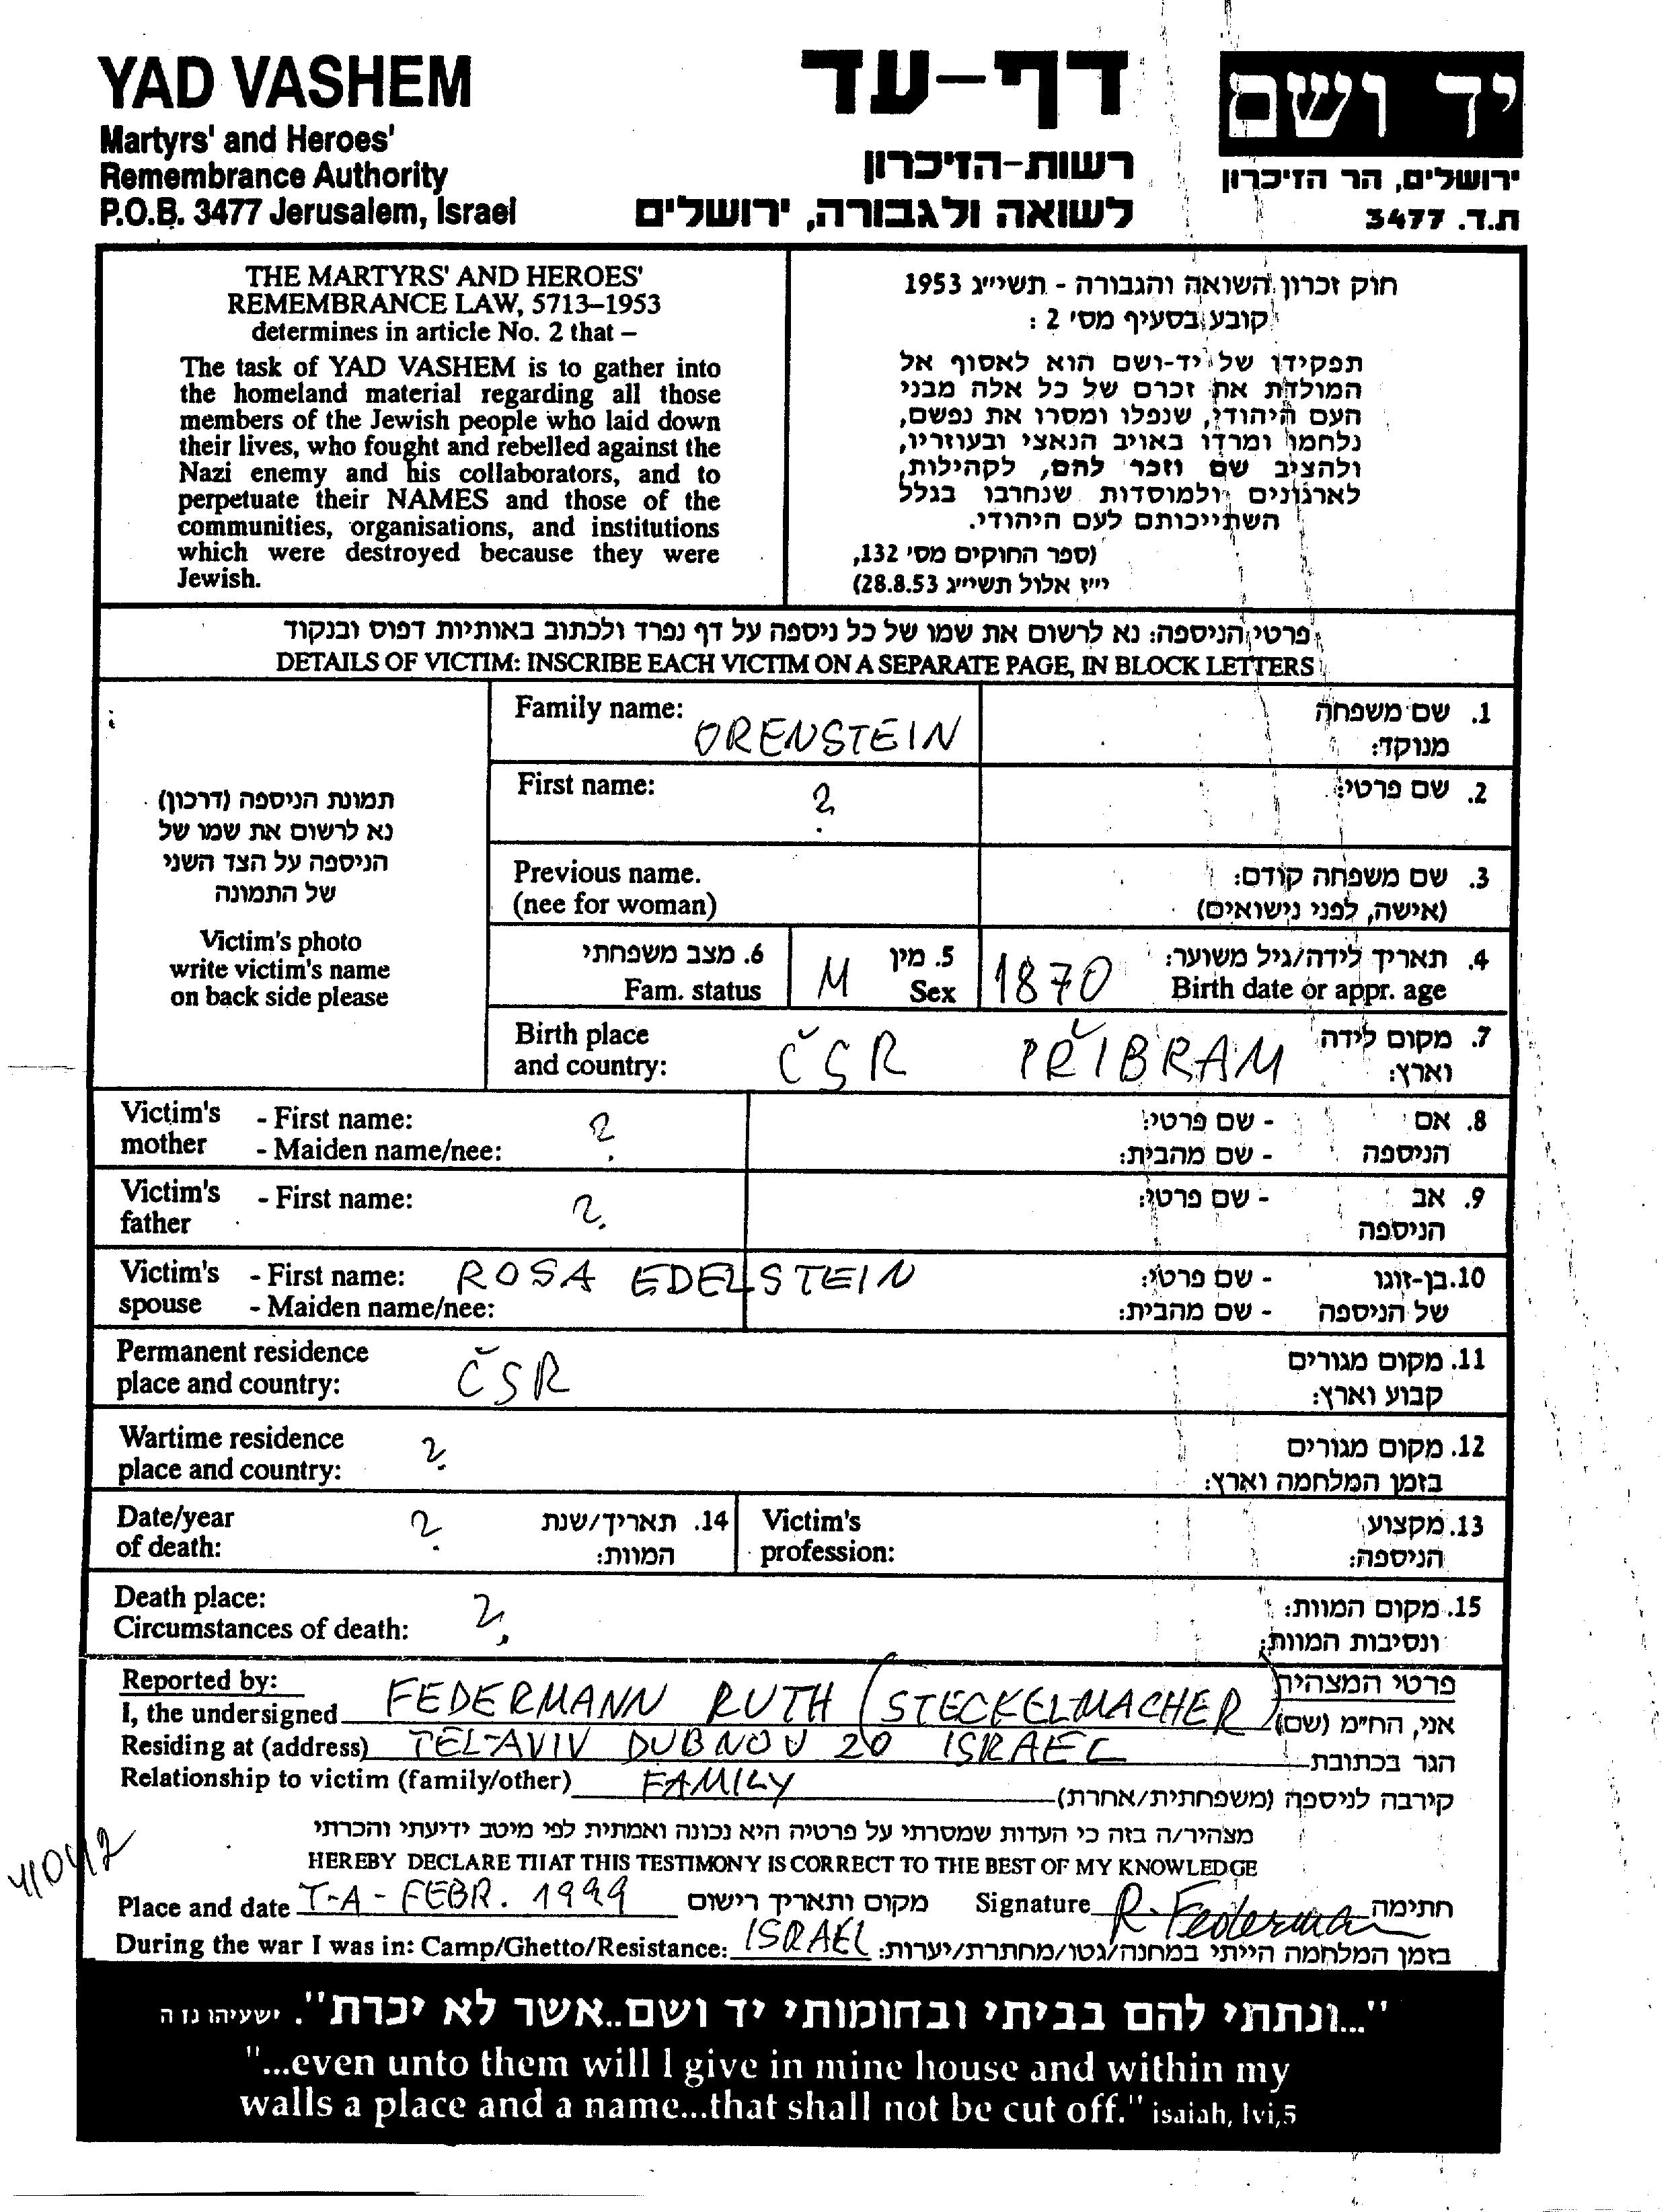 YAD VASHEM
Martyrs' and Heroes'
Remembrance Authority
P.O.B. 3477 Jerusalem, Israel
דף-עד
רשות-הזיכרון
לשואה ולגבורה, ירושלים
יד ושם
ירושלים, הר הזיכרון
ת.ד. 3477
THE MARTYRS' AND HEROES'
REMEMBRANCE LAW, 5713–1953
determines in article No. 2 that –
The task of YAD VASHEM is to gather into
the homeland material regarding all those
members of the Jewish people who laid down
their lives, who fought and rebelled against the
Nazi enemy and his collaborators, and to
perpetuate their NAMES and those of the
communities, organisations, and institutions
which were destroyed because they were
Jewish.
חוק זכרון השואה והגבורה - תשי״ג 1953
קובע בסעיף מס׳ 2 :
תפקידו של יד-ושם הוא לאסוף אל
המולדת את זכרם של כל אלה מבני
העם היהודי, שנפלו ומסרו את נפשם,
נלחמו ומרדו באויב הנאצי ובעוזריו,
ולהציב שם וזכר להם, לקהילות,
לארגונים ולמוסדות שנחרבו בגלל
השתייכותם לעם היהודי.
(ספר החוקים מס׳ 132,
י״ז אלול תשי״ג 28.8.53)
פרטי הניספה: נא לרשום את שמו של כל ניספה על דף נפרד ולכתוב באותיות דפוס ובנקוד
DETAILS OF VICTIM: INSCRIBE EACH VICTIM ON A SEPARATE PAGE, IN BLOCK LETTERS
תמונת הניספה (דרכון)
נא לרשום את שמו של
הניספה על הצד השני
של התמונה
Victim's photo
write victim's name
on back side please
Family name: ORENSTEIN 1. שם משפחה
מנוקד:
First name: ? 2. שם פרטי:
Previous name. 3. שם משפחה קודם:
(nee for woman) (אישה, לפני נישואים)
6. מצב משפחתי 5. מין 4. תאריך לידה/גיל משוער:
Fam. status M Sex 1870 Birth date or appr. age
Birth place 7. מקום לידה
and country: ČSR PŘIBRAM וארץ:
Victim's - First name: ? - שם פרטי: 8. אם
mother - Maiden name/nee: - שם מהבית: הניספה
Victim's - First name: ? - שם פרטי: 9. אב
father הניספה
Victim's - First name: ROSA EDELSTEIN - שם פרטי: 10. בן-זוגו
spouse - Maiden name/nee: - שם מהבית: של הניספה
Permanent residence 11. מקום מגורים
place and country: ČSR קבוע וארץ:
Wartime residence ? 12. מקום מגורים
place and country: בזמן המלחמה וארץ:
Date/year ? 14. תאריך/שנת Victim's 13. מקצוע
of death: המוות: profession: הניספה:
Death place: ? 15. מקום המוות:
Circumstances of death: ונסיבות המוות:
Reported by: פרטי המצהיר
I, the undersigned FEDERMANN RUTH (STECKELMACHER) אני, הח״מ (שם)
Residing at (address) TEL-AVIV DUBNOV 20 ISRAEL הגר בכתובת
Relationship to victim (family/other) FAMILY קירבה לניספה (משפחתית/אחרת)
מצהיר/ה בזה כי העדות שמסרתי על פרטיה היא נכונה ואמתית לפי מיטב ידיעתי והכרתי
HEREBY DECLARE THAT THIS TESTIMONY IS CORRECT TO THE BEST OF MY KNOWLEDGE
Place and date T-A - FEBR. 1999 מקום ותאריך רישום Signature R. Federmann חתימה
During the war I was in: Camp/Ghetto/Resistance: ISRAEL בזמן המלחמה הייתי במחנה/גטו/מחתרת/יערות:
"...ונתתי להם בביתי ובחומותי יד ושם..אשר לא יכרת". ישעיהו נו ה
"...even unto them will I give in mine house and within my
walls a place and a name...that shall not be cut off." isaiah, lvi,5